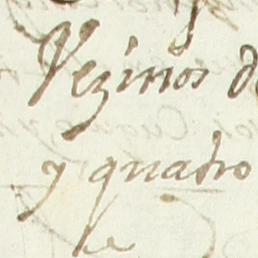 Vezinos d
y quatro